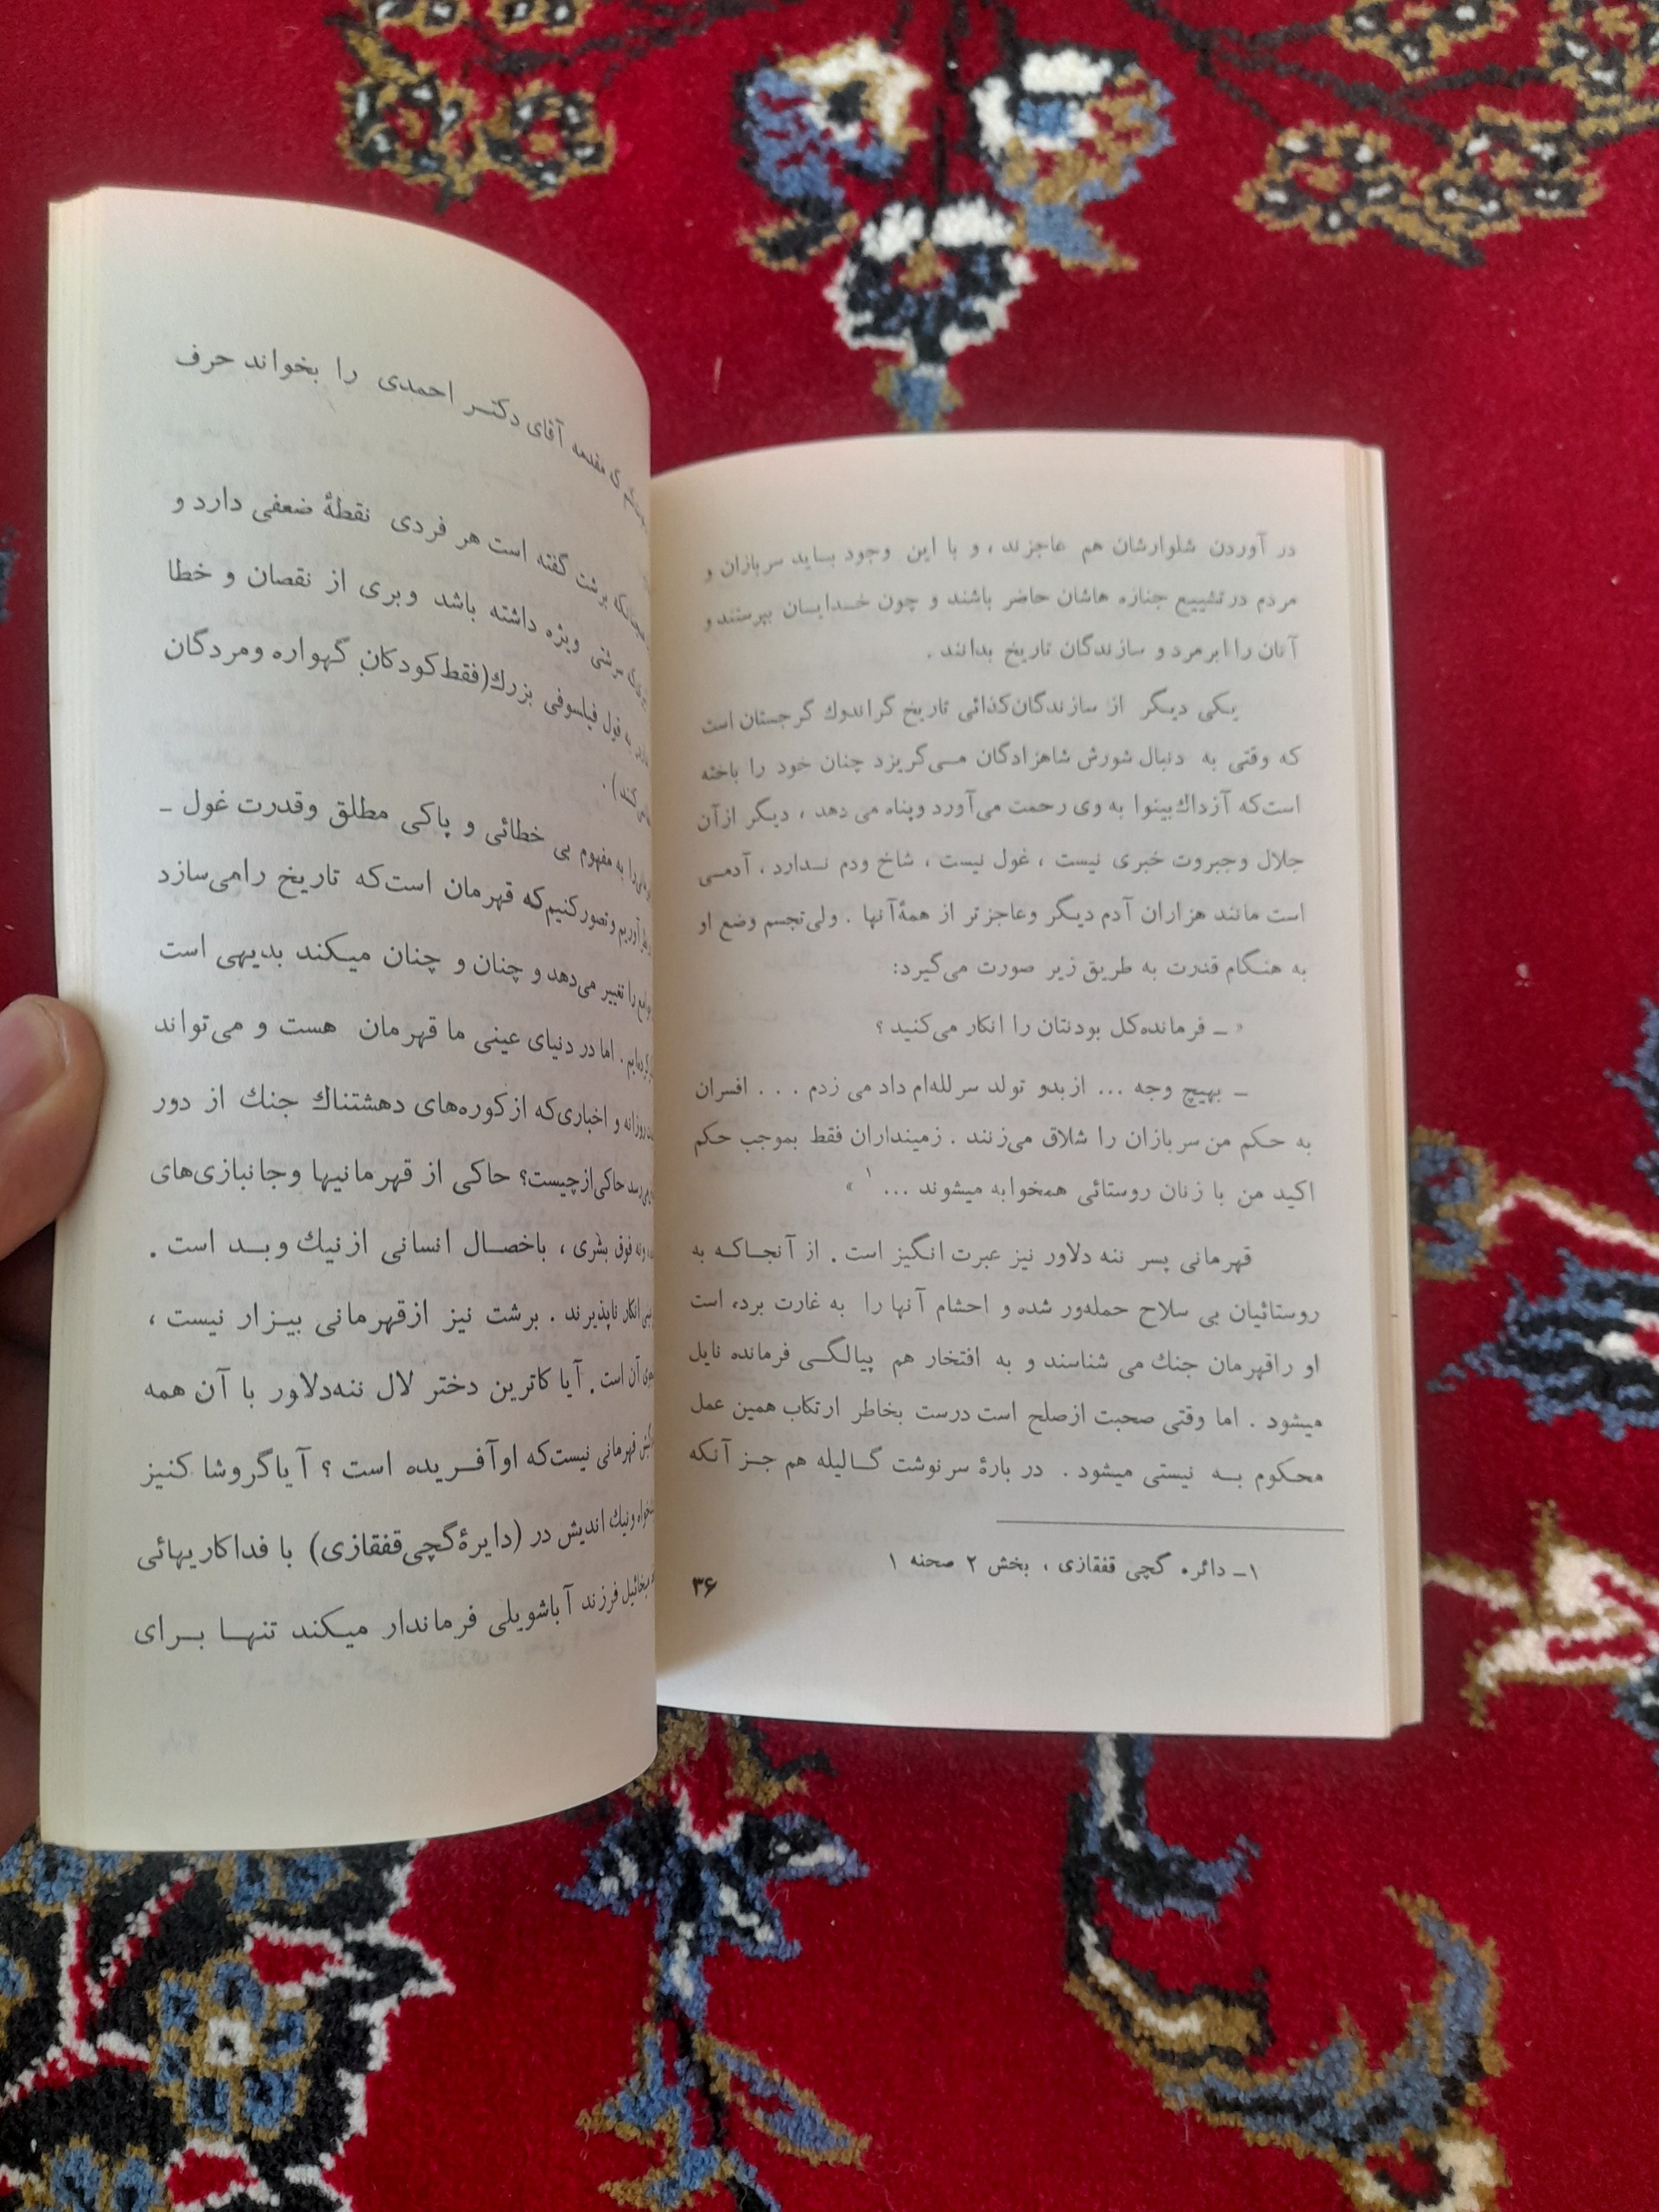 در آوردن شلوارشان هم عاجزند ، و با این وجود بساید سربازان و
مردم در تشییع جنازه هاشان حاضر باشند و چون خدایسان بپرستند و
آنان را ابرمرد و سازندگان تاریخ بدانند .
یکی دیگر از سازندگان کذائی تاریخ گراندوك گرجستان است
که وقتی به دنبال شورش شاهزادگان می‌گریزد چنان خود را باخته
است که آزداك بینوا به وی رحمت می‌آورد و پناه می دهد ، دیگر از آن
جلال وجبروت خبری نیست ، غول نیست ، شاخ ودم ندارد ، آدمی
است مانند هزاران آدم دیگر وعاجزتر از همهٔ آنها . ولی تجسم وضع او
به هنگام قدرت به طریق زیر صورت می‌گیرد:
« ــ فرمانده کل بودنتان را انکار می‌کنید ؟
ــ بهیچ وجه ... از بدو تولد سر لله‌ام داد می زدم . . . افسران
به حکم من سربازان را شلاق می‌زنند . زمینداران فقط بموجب حکم
اکید من با زنان روستائی همخوابه میشوند ... ۱ »
قهرمانی پسر ننه دلاور نیز عبرت انگیز است . از آنجاکه به
روستائیان بی سلاح حمله‌ور شده و احشام آنها را به غارت برده است
او را قهرمان جنك می شناسند و به افتخار هم پیالگی فرمانده نایل
میشود . اما وقتی صحبت از صلح است درست بخاطر ارتکاب همین عمل
محکوم به نیستی میشود . در بارهٔ سرنوشت گالیله هم جز آنکه
۱ــ دائره گچی قفقازی ، بخش ۲ صحنه ۱
۳۶
ی مقدمه آقای دکتر احمدی را بخواند حرف
برشت گفته است هر فردی نقطهٔ ضعفی دارد و
ویژه داشته باشد وبری از نقصان و خطا
به قول فیلسوفی بزرك (فقط کودکان گهواره ومردگان
کند) .
را به مفهوم بی خطائی و پاکی مطلق وقدرت غول ــ
آوریم و تصور کنیم که قهرمان است که تاریخ را می‌سازد
را تغییر می‌دهد و چنان و چنان میکند بدیهی است
. اما در دنیای عینی ما قهرمان هست و می‌تواند
روزانه و اخباری که از کوره‌های دهشتناك جنك از دور
رسد حاکی از چیست؟ حاکی از قهرمانیها وجانبازی‌های
ونه فوق بشری ، باخصال انسانی از نیك وبد است .
انکار ناپذیرند . برشت نیز از قهرمانی بیزار نیست ،
آن است . آیا کاترین دختر لال ننه‌دلاور با آن همه
قهرمانی نیست که او آفریده است ؟ آیا گروشا کنیز
ونیك اندیش در (دایرهٔ گچی قفقازی) با فداکاریهائی
میخائیل فرزند آباشویلی فرماندار میکند تنها برای